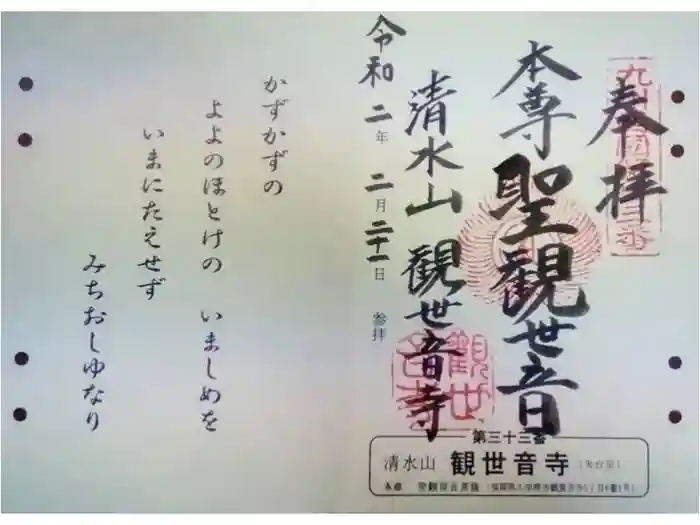 奉拝
本尊 聖観世音
清水山 観世音寺
令和二年二月二十一日 参拝
第三十三番
清水山 観世音寺 (天台宗)
本尊 聖観世音菩薩
かずかずの
よよのほとけの いましめを
いまにたえせず
みちおしゆなり